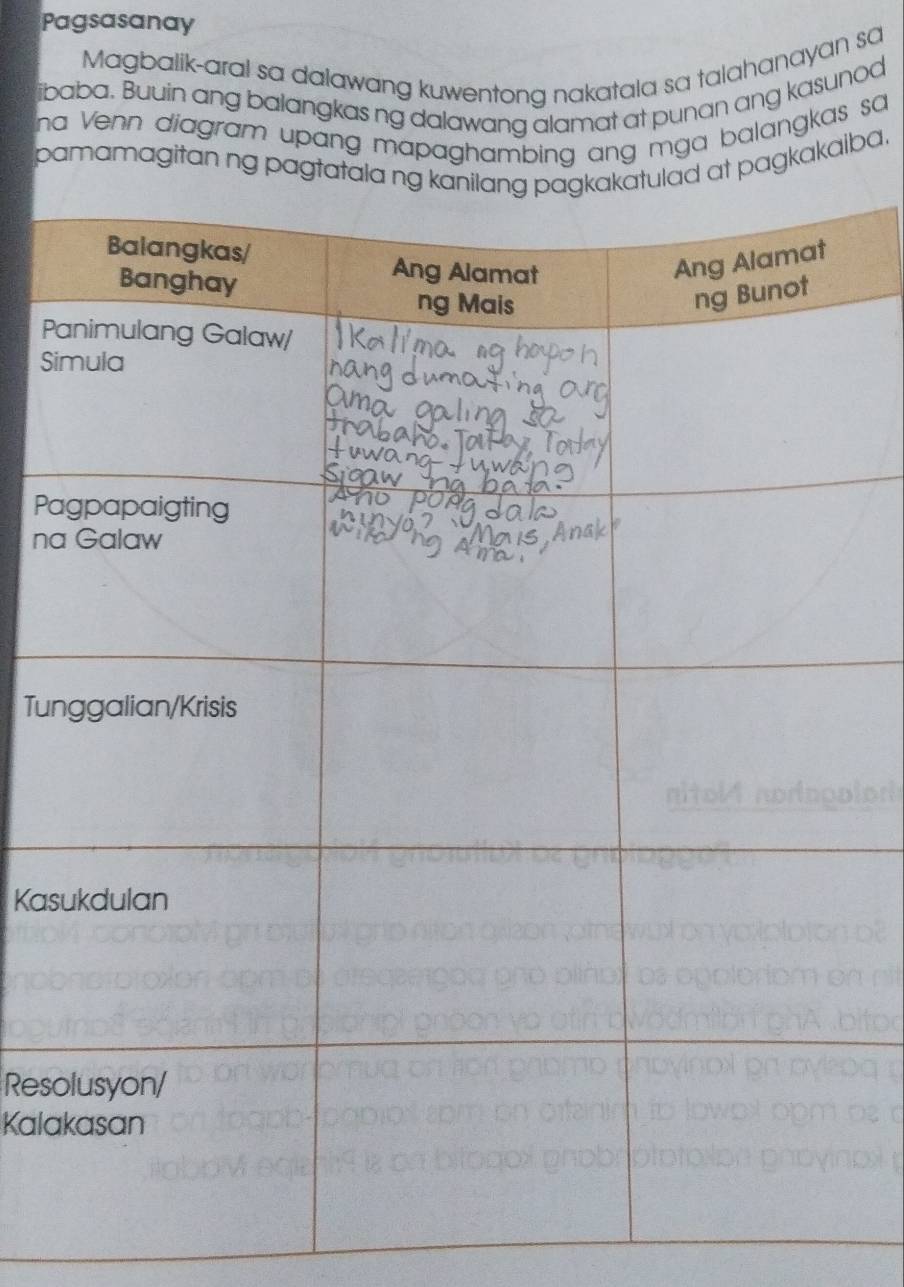 Pagsasanay
Magbalik-aral sa dalawang kuwentong nakatala sa talahanayan sa
ibaba. Buuin ang balangkas ng dalawang alamat at punan ang kasunod
na Venn diagram upang mapaghambing ang mga balangkas sa
pamamagitan ng pagtatala ng kanilang pagkakatulad at pagkakaiba.
Balangkas/
Banghay
Ang Alamat
ng Mais
Ang Alamat
ng Bunot
Panimulang Galaw/
Simula
Ikalima ng hapon
nang dumating ang
ama galing sa
trabaho. Tatay, Tatay
tuwang-tuwang
sigaw ng bata.
Pagpapaigting
na Galaw
Ano pong dala
ninyo? Mais, Anak
wika ng Ama.
Tunggalian/Krisis
Kasukdulan
Resolusyon/
Kalakasan